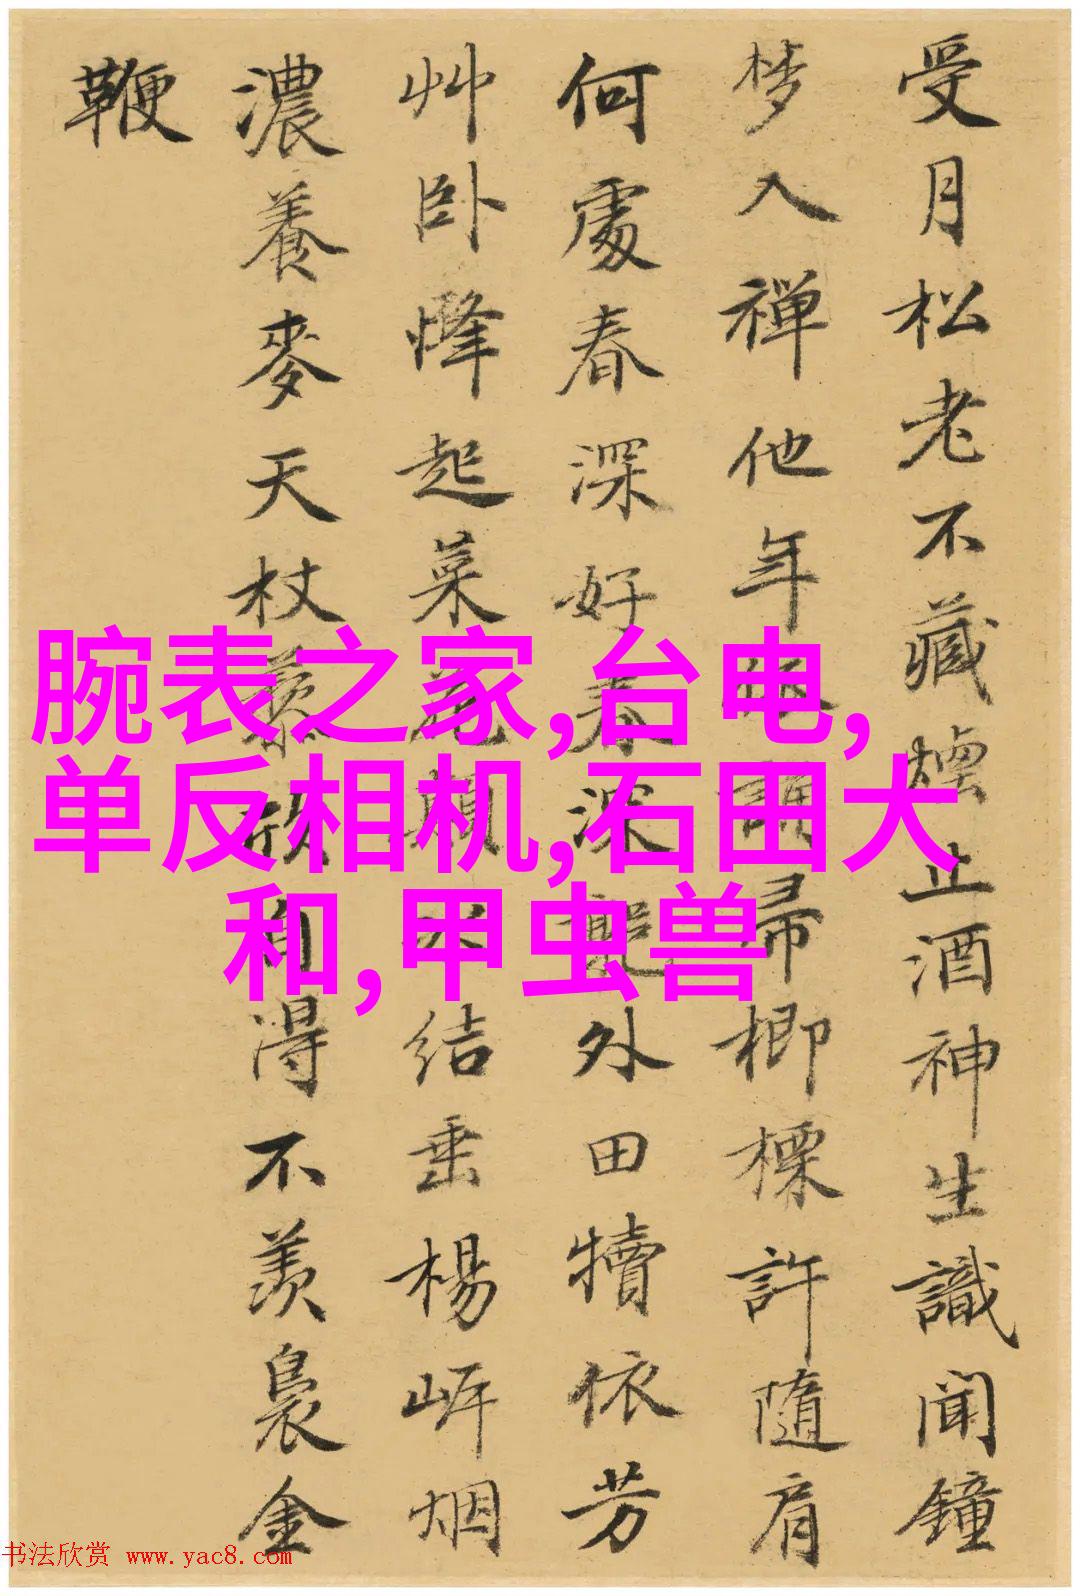 受月松老不藏煙止酒神生識聞鐘
梦入禅他年歸楖標許隨肩
何處春深好春深外田犢依芳
艸卧起菜结垂楊岸烟
濃養麥天杖藜欣自得不羡裊金
鞭
腕表之家,台电,
单反相机,石田大
和,甲虫兽
书法欣赏 www.yac8.com